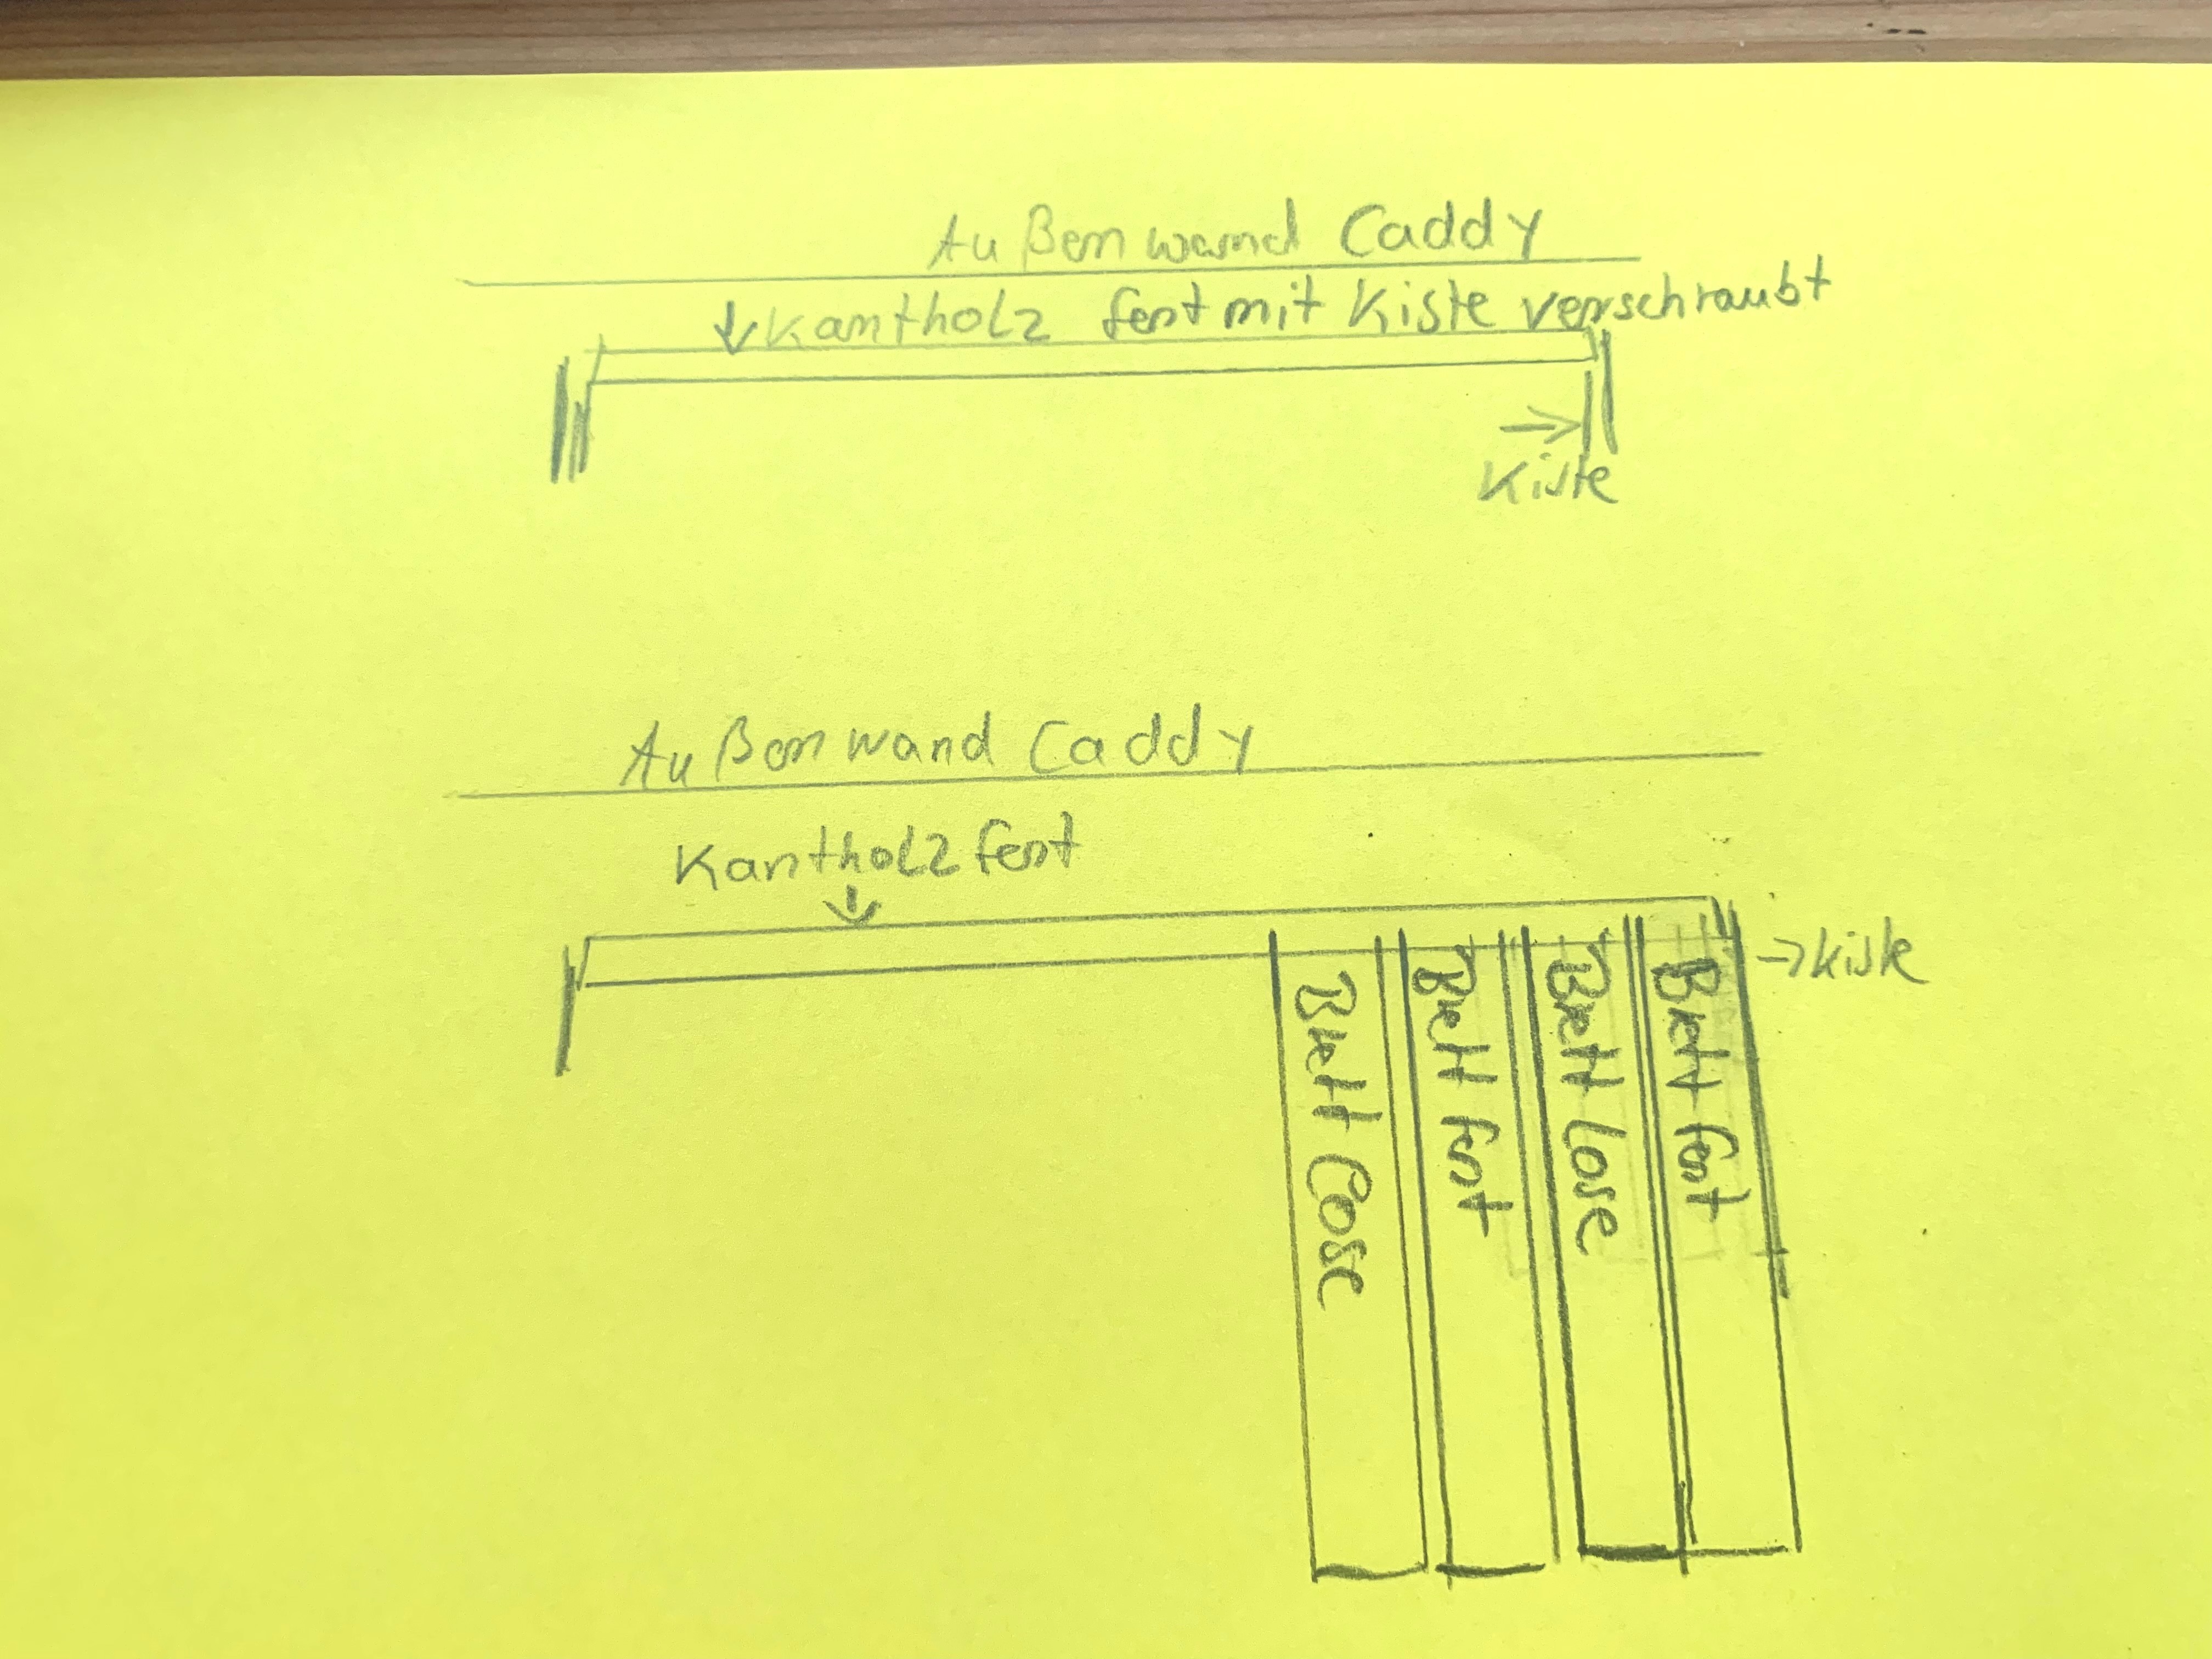 Außenwand Caddy
↓ Kantholz fest mit Kiste verschraubt
→
Kiste
Außenwand Caddy
Kantholz fest
↓
→ Kiste
Brett Lose
Brett fest
Brett Lose
Brett fest